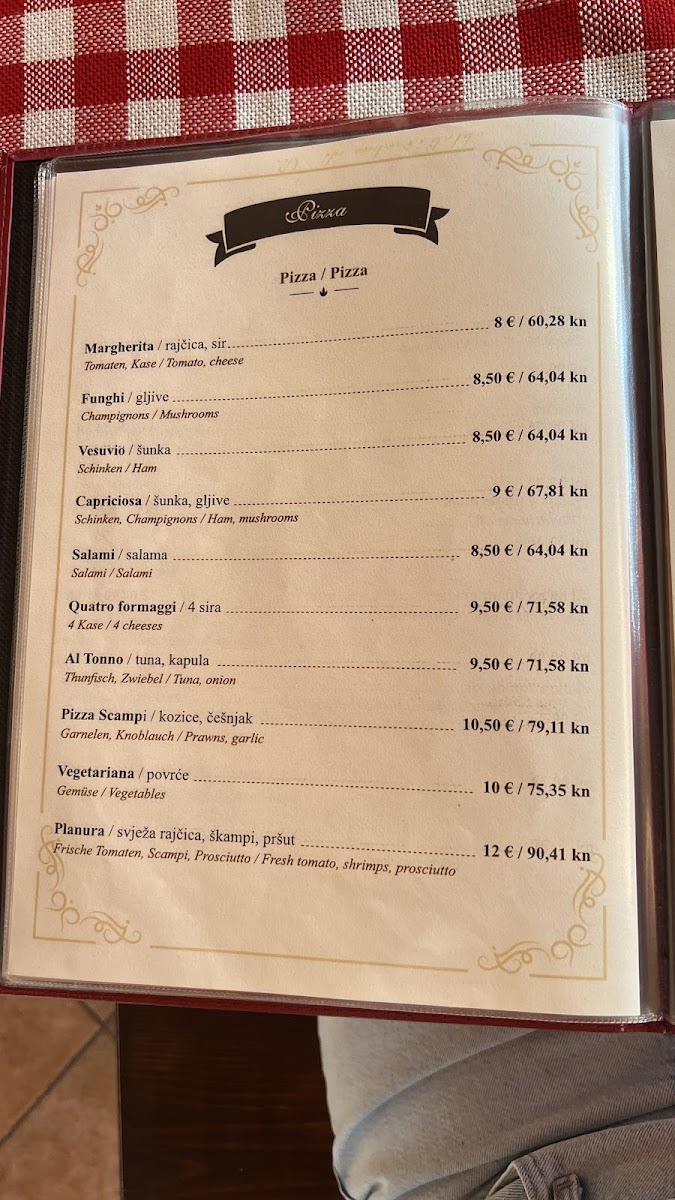 Pizza
Pizza / Pizza
Margherita / rajčica, sir 8 € / 60,28 kn
Tomaten, Kase / Tomato, cheese
Funghi / gljive 8,50 € / 64,04 kn
Champignons / Mushrooms
Vesuvio / šunka 8,50 € / 64,04 kn
Schinken / Ham
Capriciosa / šunka, gljive 9 € / 67,81 kn
Schinken, Champignons / Ham, mushrooms
Salami / salama 8,50 € / 64,04 kn
Salami / Salami
Quatro formaggi / 4 sira 9,50 € / 71,58 kn
4 Kase / 4 cheeses
Al Tonno / tuna, kapula 9,50 € / 71,58 kn
Thunfisch, Zwiebel / Tuna, onion
Pizza Scampi / kozice, češnjak 10,50 € / 79,11 kn
Garnelen, Knoblauch / Prawns, garlic
Vegetariana / povrće 10 € / 75,35 kn
Gemüse / Vegetables
Planura / svježa rajčica, škampi, pršut 12 € / 90,41 kn
Frische Tomaten, Scampi, Prosciutto / Fresh tomato, shrimps, prosciutto